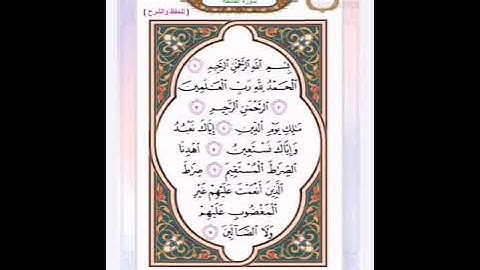 سورة الفاتحة
( للحفظ والشرح )
بِسْمِ ٱللَّهِ ٱلرَّحْمَٰنِ ٱلرَّحِيمِ ١
ٱلْحَمْدُ لِلَّهِ رَبِّ ٱلْعَٰلَمِينَ
٢ ٱلرَّحْمَٰنِ ٱلرَّحِيمِ ٣
مَٰلِكِ يَوْمِ ٱلدِّينِ ٤ إِيَّاكَ نَعْبُدُ
وَإِيَّاكَ نَسْتَعِينُ ٥ ٱهْدِنَا
ٱلصِّرَٰطَ ٱلْمُسْتَقِيمَ ٦ صِرَٰطَ
ٱلَّذِينَ أَنْعَمْتَ عَلَيْهِمْ غَيْرِ
ٱلْمَغْضُوبِ عَلَيْهِمْ
وَلَا ٱلضَّآلِّينَ ٧